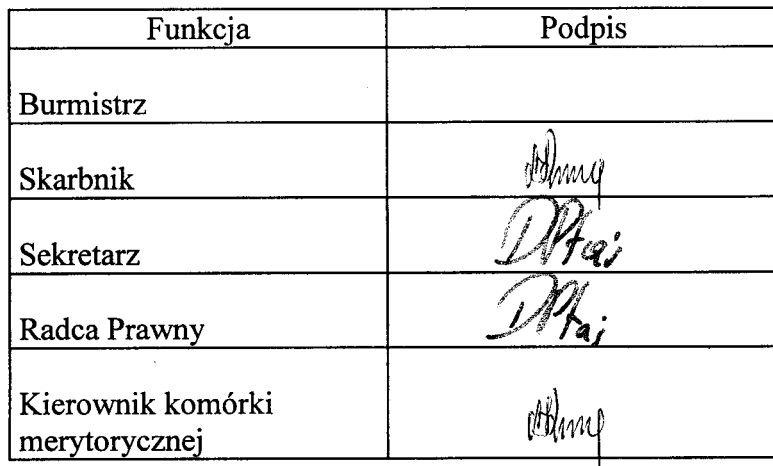 Funkcja Podpis
Burmistrz
Skarbnik
Sekretarz DPtaj
Radca Prawny DPtaj
Kierownik komórki
merytorycznej